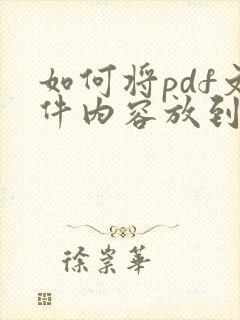 如何将pdf文
件内容放到
徐崇华